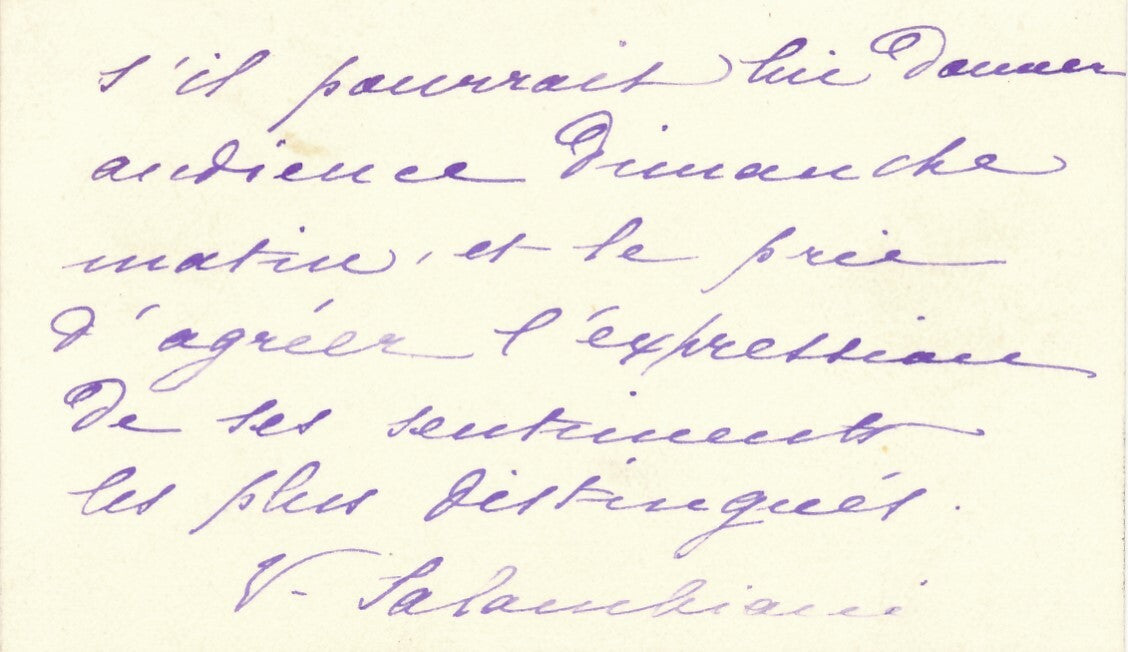 s'il pourrait lui donner
audience Dimanche
matin, et le prie
d'agréer l'expression
de ses sentiments
les plus distingués.
V.